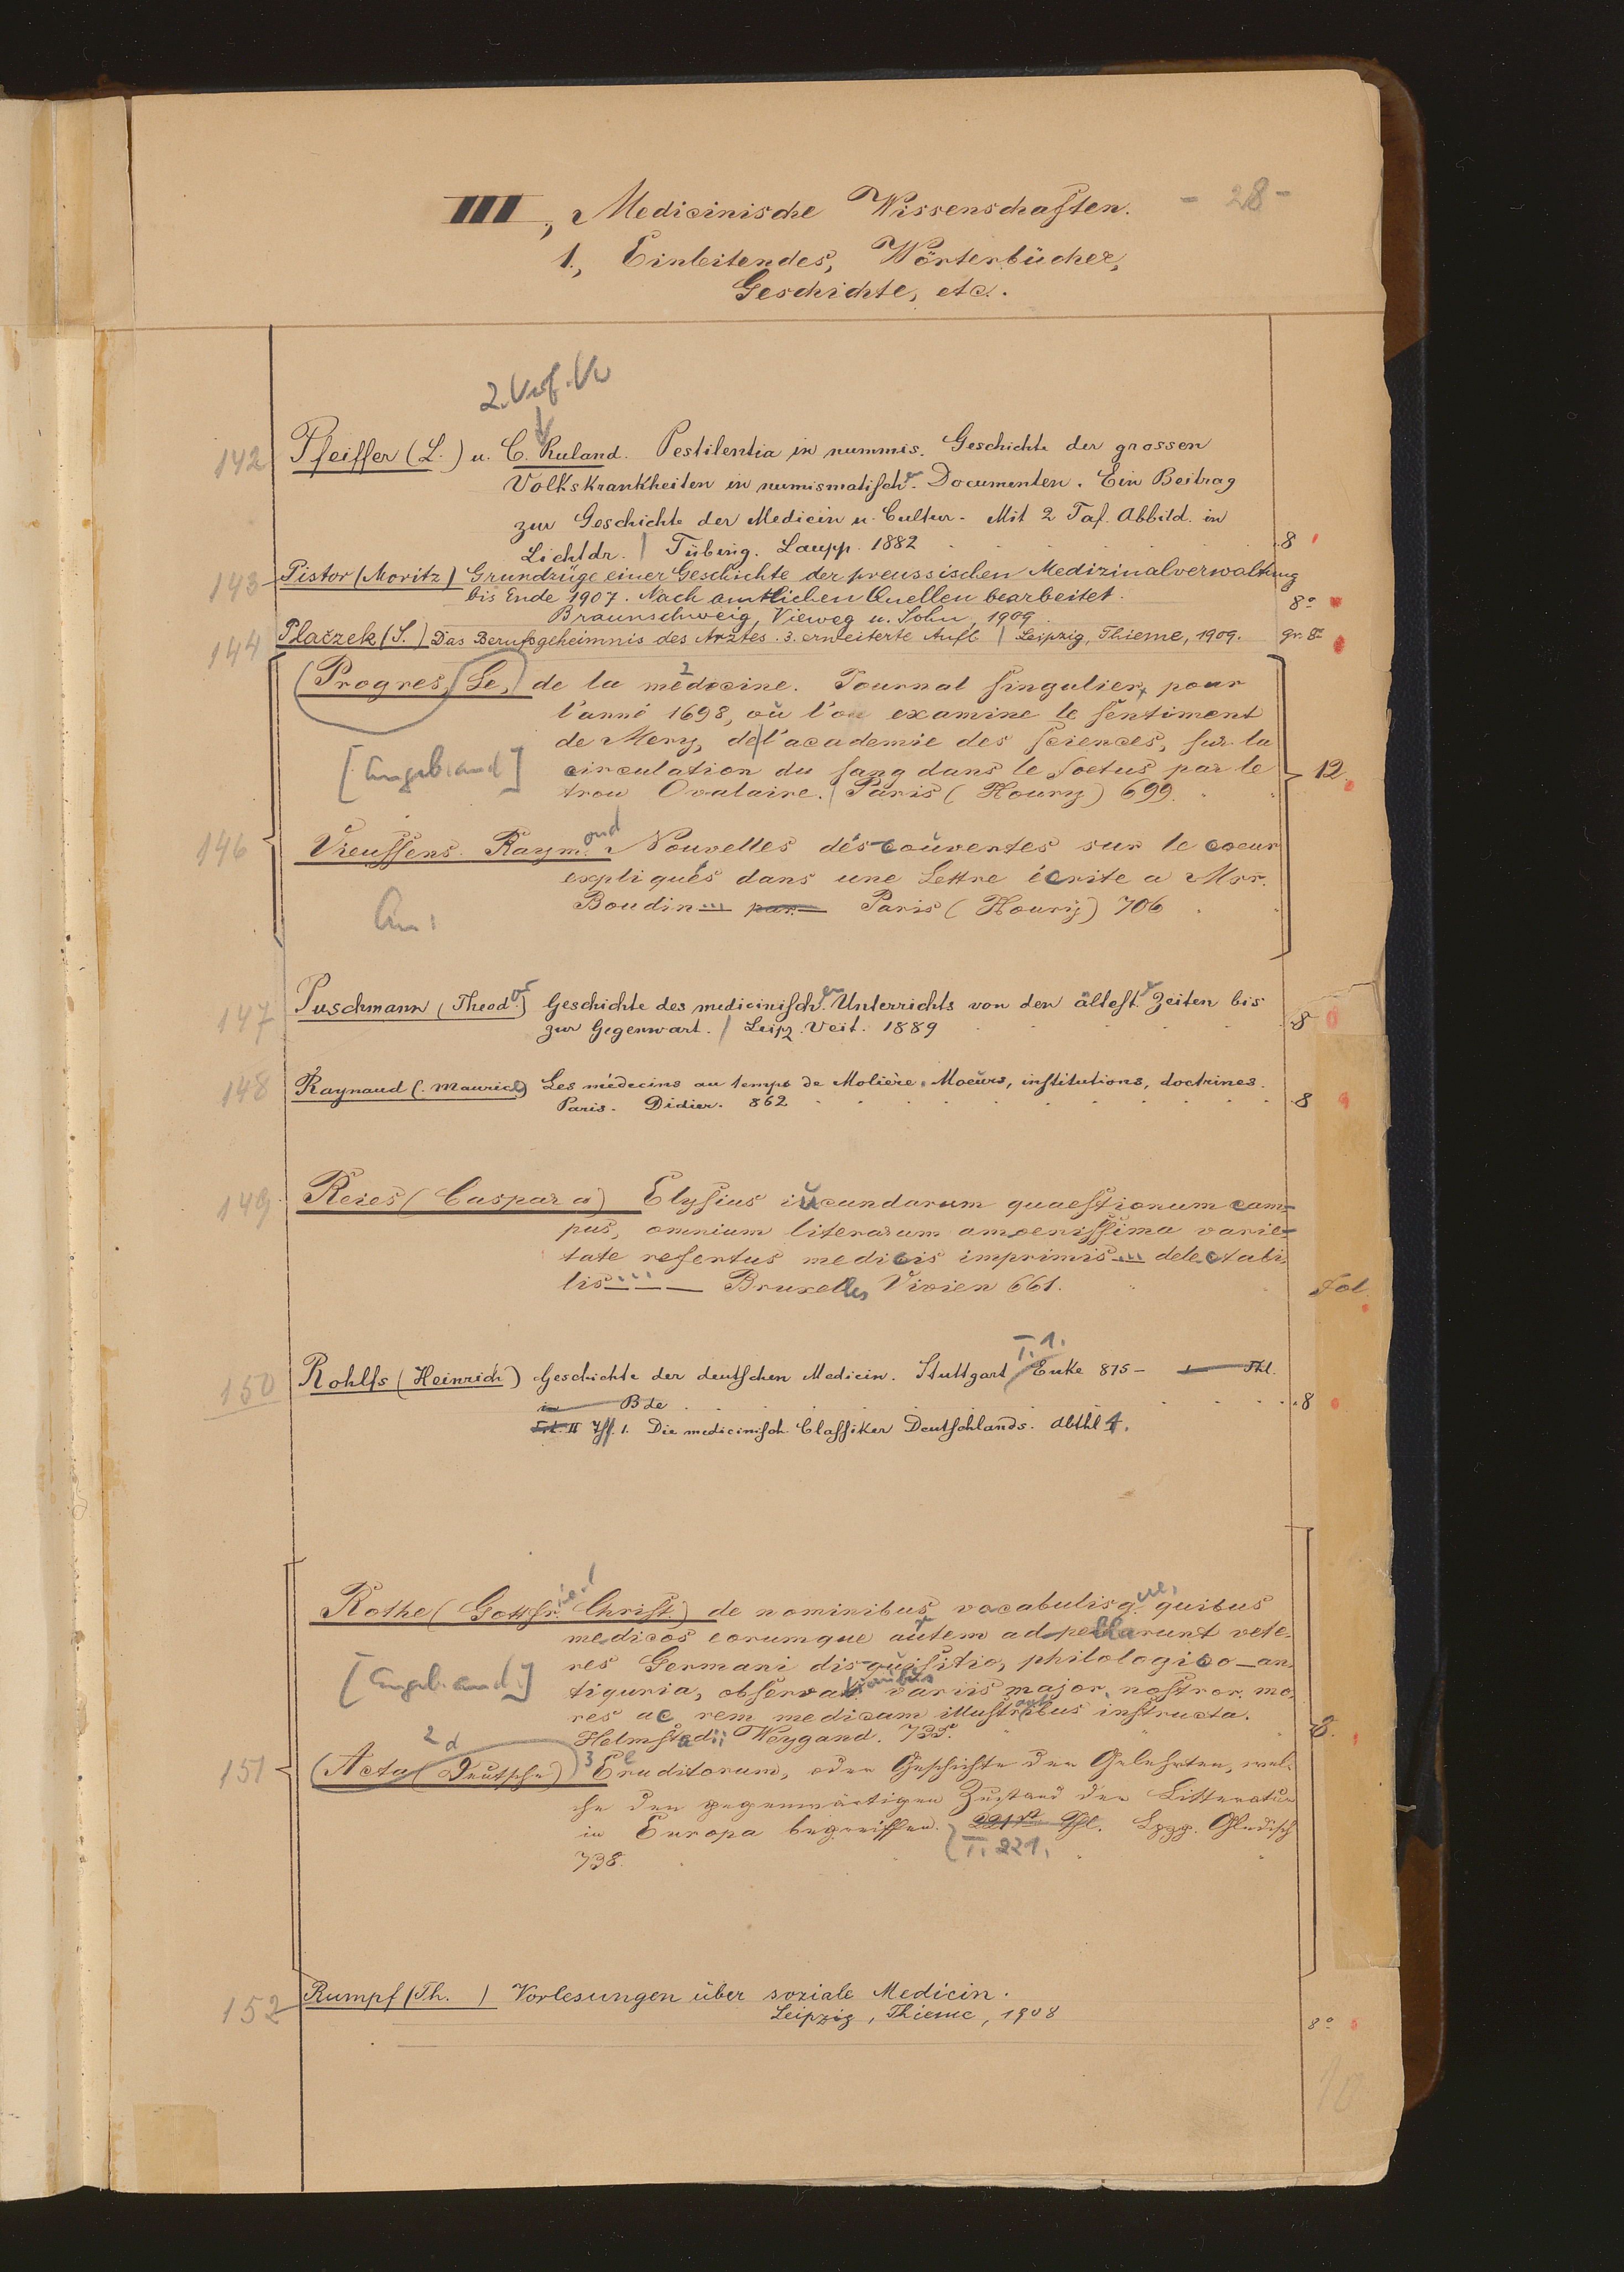 III, Medicinische Wissenschaften. - 28 -
1., Einleitendes, Wörterbücher,
Geschichte, etc.
2. Verf. Vw
142 Pfeiffer (L.) u. C. Ruland. Pestilentia in nummis. Geschichte der grossen
Volkskrankheiten in numismatischen Documenten. Ein Beitrag
zur Geschichte der Medicin u. Cultur. Mit 2 Taf. Abbild. in
Lichtdr. / Tübing. Laupp. 1882 8
143 Pistor (Moritz) Grundzüge einer Geschichte der preussischen Medizinalverwaltung
bis Ende 1907. Nach amtlichen Quellen bearbeitet.
Braunschweig, Vieweg u. Sohn, 1909. 8º
144 PlaČzek (S.) Das Berufsgeheimnis des Arztes. 3. erweiterte Aufl. | Leipzig, Thieme, 1909. gr. 8º
(Progres, (Le,) de la medecine. Journal singulier, pour
l'anné 1698, où l'on examine le sentiment
de Mery, de l'academie des sciences, sur la
[Angeb. and] circulation du sang dans le foetus par le
trou Ovalaire. / Paris (Houry) 699. 12.
146 Vieussens. Raymond Nouvelles découvertes sur le coeur
expliqués dans une Lettre écrite a Msr.
An: Boudin ... par Paris (Houry) 706
147 Puschmann (Theodor) Geschichte des medicinischen Unterrichts von den ältesten Zeiten bis
zur Gegenwart. / Leipz. Veit. 1889 8
148 Raynaud (Maurice) Les médecins au temps de Molière. Moeurs, institutions, doctrines.
Paris. Didier. 862 8
149 Reies (Caspar a) Elysius iucundarum quaestionum cam-
pus, omnium literarum amoenissima varie-
tate refertus medicis imprimis ... delectabi-
lis ... Bruxelles Vivien 661. Fol.
T. 1.
150 Rohlfs (Heinrich) Geschichte der deutschen Medicin. Stuttgart / Enke 875 - Thl.
in Bde 8
II Iff. 1. Die medicinisch. Classiker Deutschlands. Abthl 1.
Rothe (Gottfried Christ) de nominibus vocabulisque, quibus
medicos eorumque autem adpellarunt vete-
res Germani disquisitio, philologico-an-
[Angeb. and.] tiquria, observationibus variis major. nostror. mo-
res ac rem medicam illustrantibus instructa.
Helmstadii Weygand. 735. 8.
151 (Acta (Deutsche) Eruditorum, oder Geschichte der Gelehrten, wel-
che den gegenwärtigen Zustand der Litteratur
in Europa begreiffen. 221st Thl. Lpzg. Gleditsch
T. 221.
738.
152 Rumpf (Th.) Vorlesungen über soziale Medicin.
Leipzig, Thieme, 1908 8º
10